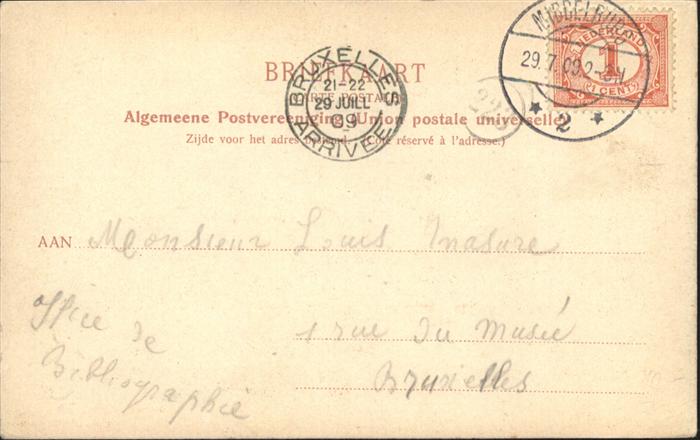 BRIEFKAART
CARTE POSTALE
Algemeene Postvereeniging (Union postale universelle)
Zijde voor het adres bestemd. (Côté réservé à l'adresse.)
BRUXELLES
21-22
29 JUILL
09
ARRIVÉE
MIDDELBURG
29.7.09.2-3N
2
NEDERLAND
1
(1 CENT)
AAN Monsieur Louis Masure
Office de
Bibliographie
1 rue du Musée
Bruxelles